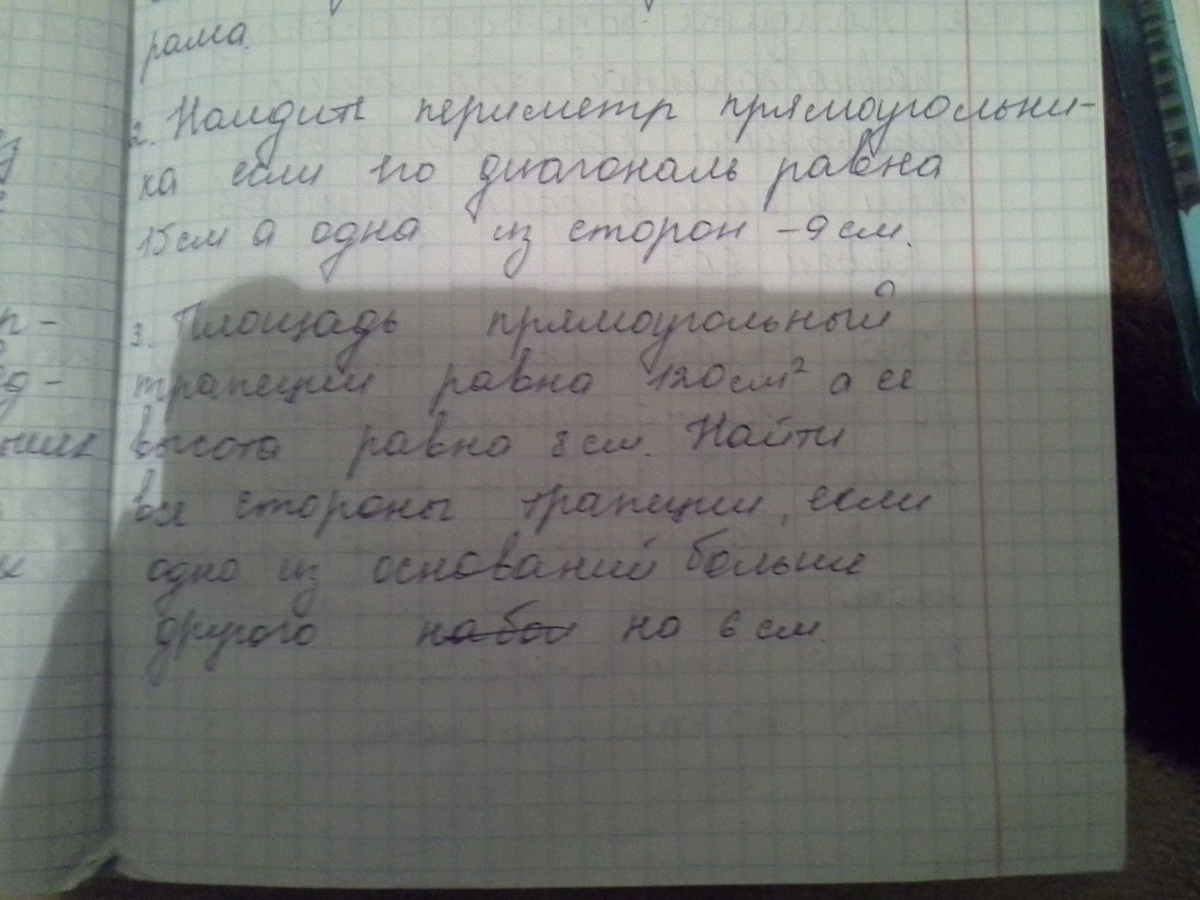 рама.
2. Найдите периметр прямоугольни-
ка если его диагональ равна
15см а одна из сторон -9см.
3. Площадь прямоугольный
трапеции равна 120см² а ее
высота равна 8см. Найти
все стороны трапеции, если
одно из оснований больше
другого на бол на 6см.